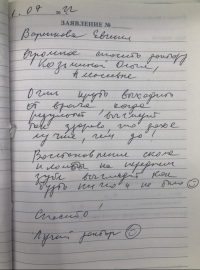 1.07
ЗАЯВЛЕНИЕ №
Евгения
Огромное спасибо доктору
Козьминой Ольге,
Очень круто выходить
от врача когда
результат выглядит
так здорово, что даже
лучше, чем до
Восстановление скола
и пломба на переднем
зубе выглядят как
будто ничего и не было ☺
Спасибо!
Лучший доктор ☺